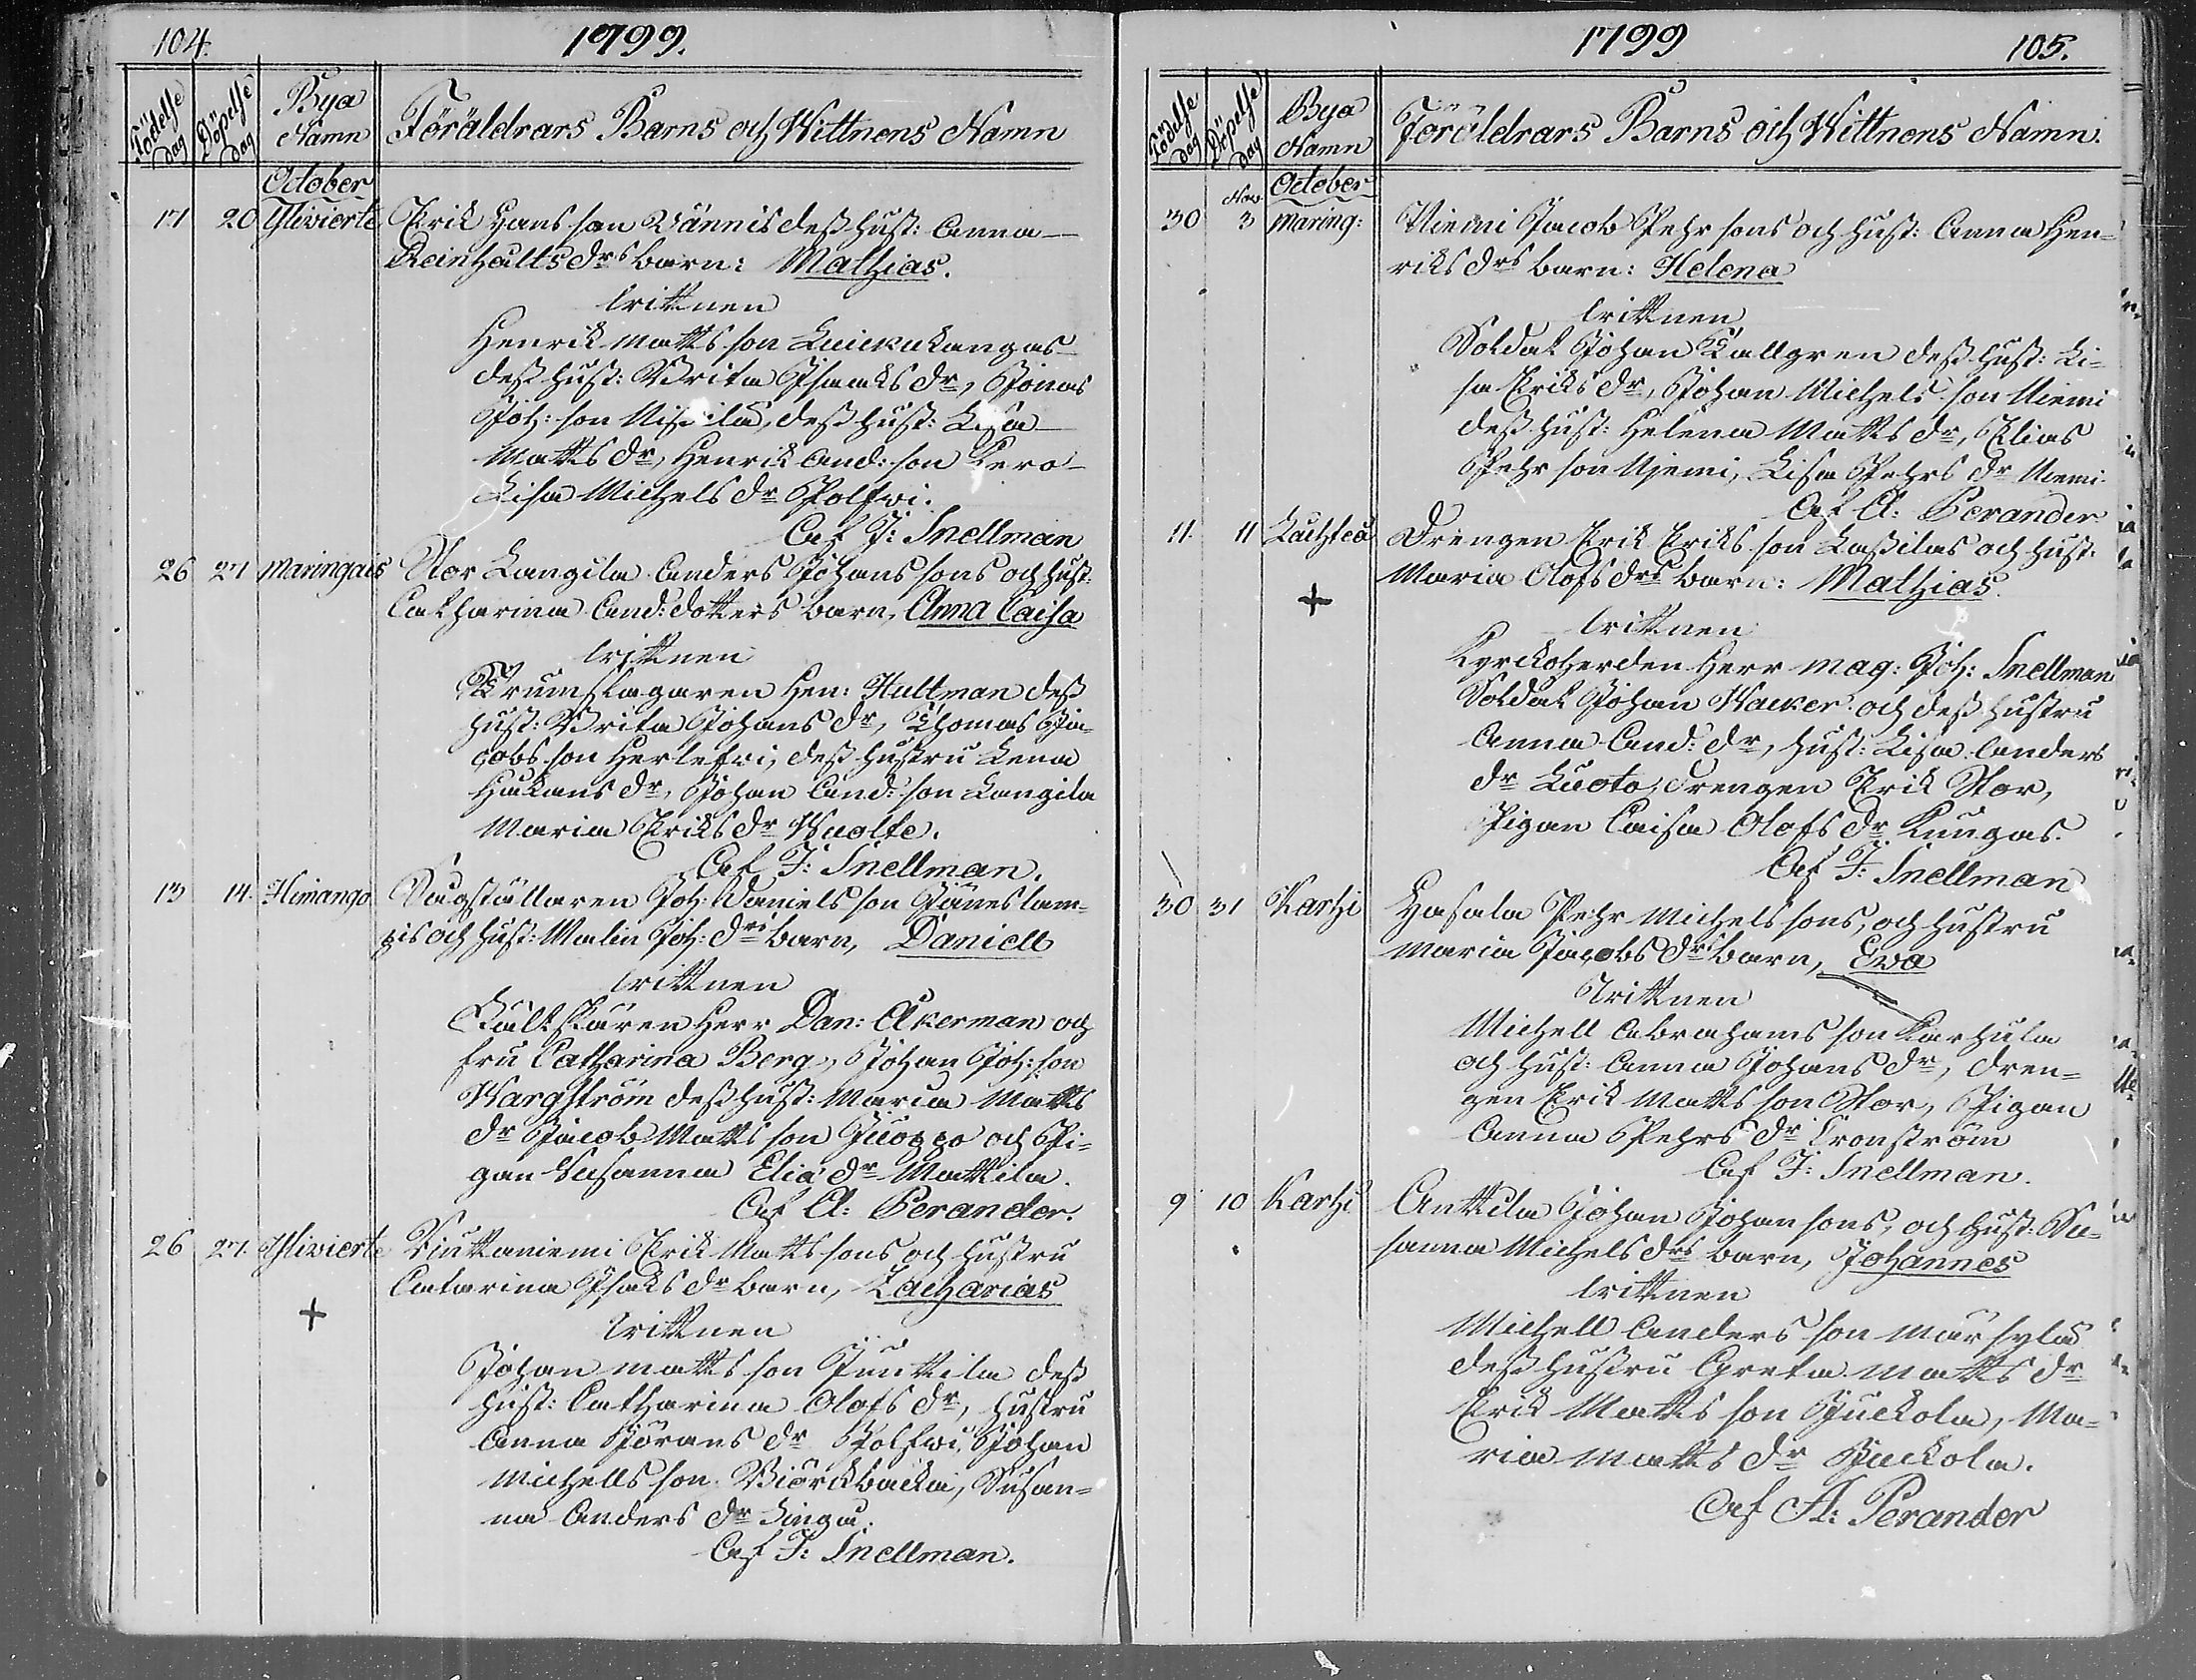 104.
1799.
Födelse dag
Döpelse dag
Bya Namn
Föräldrars Barns och Wittnens Namn
October
17 20 Yliviert Erik Hans son Männis dess hust: Anna
Reinhults drs barn: Mathias.
wittnen
Henrik Matts son Kuickukangas
dess hust: Brita Isaaks dr, Jonas
Joh: son dess hust: Lisa
Matts dr, Henrik And: son Kero
Lisa Michels dr Polfwi.
Af J: Snellman
26 27 Maringais Stor Langila Anders Johans sons och hust:
Catharina And: dotters barn, Anna Caisa
wittnen
Trumslagaren Hen: Hultman dess
hust: Brita Johans dr, Thomas Ja-
cobs son Herlefwi, dess hustru Lena
Hakans dr, Johan And: son Langila
Maria Eriks dr Wuolte.
Af J: Snellman.
13 14. Himango Joh: Daniels son Jäneslam-
pis och hust: Malin Joh: drs barn, Daniell
wittnen
Herr Dan: Åkerman och
fru Catharina Berg, Johan Joh: son
Wargström dess hust: Maria Matts
dr Jacob Matts son Juoppo och Pi-
gan Susanna Elia dr Mattila.
Af A: Perander.
26 27. Yliviert Viuttaniemi Erik Matts sons och hustru
Catarina Isaks dr barn, Zacharias
+
wittnen
Johan Matts son Junttila dess
hust: Catharina Olofs dr, hustru
Anna Görans dr Polfwi, Johan
Michells son Biörckbacka, Susan-
na Anders dr Linga.
Af J: Snellman.
1799
105.
Födelse dag
Döpelse dag
Bya Namn
Föräldrars Barns och Wittnens Namn.
October
Nov.
30 3 Maring: Niemi Jacob Pehr sons och hust: Anna Hen-
riks drs barn: Helena
wittnen
Soldat Johan Tallgren dess hust: Li-
sa Eriks dr, Johan Michels son Niemi
dess hust: Helena Matts dr, Elias
Pehr son Niemi, Lisa Pehrs dr Niemi.
Af A: Perander
11. 11 Lachtea Drengen Erik Eriks son Lassilas och hust:
Maria Olofs drs barn: Mathias.
+
wittnen
Kyrckoherden Herr Mag: Joh: Snellman
Soldat Johan Wacker och dess hustru
Anna And: dr, hust: Lisa Anders
dr Luoto, Drengen Erik Stor,
Pigan Caisa Olofs dr Kungas.
Af J: Snellman
30 31 Karhi Hasala Pehr Michels sons, och hustru
Maria Jacobs drs barn, Ewa
Wittnen
Michell Abrahams son Karhula
och hust: Anna Johans dr, Dren-
gen Erik Matts son Stor, Pigan
Anna Pehrs dr Cronström
Af J: Snellman.
9 10 Karhi Anttila Johan Johan sons, och hust: Su-
sanna Michels drs barn, Johannes
wittnen
Michell Anders son Märsylä
dess hustru Greta Matts dr
Erik Matts son Juckola, Ma-
ria Matts dr Juckola.
Af A: Perander